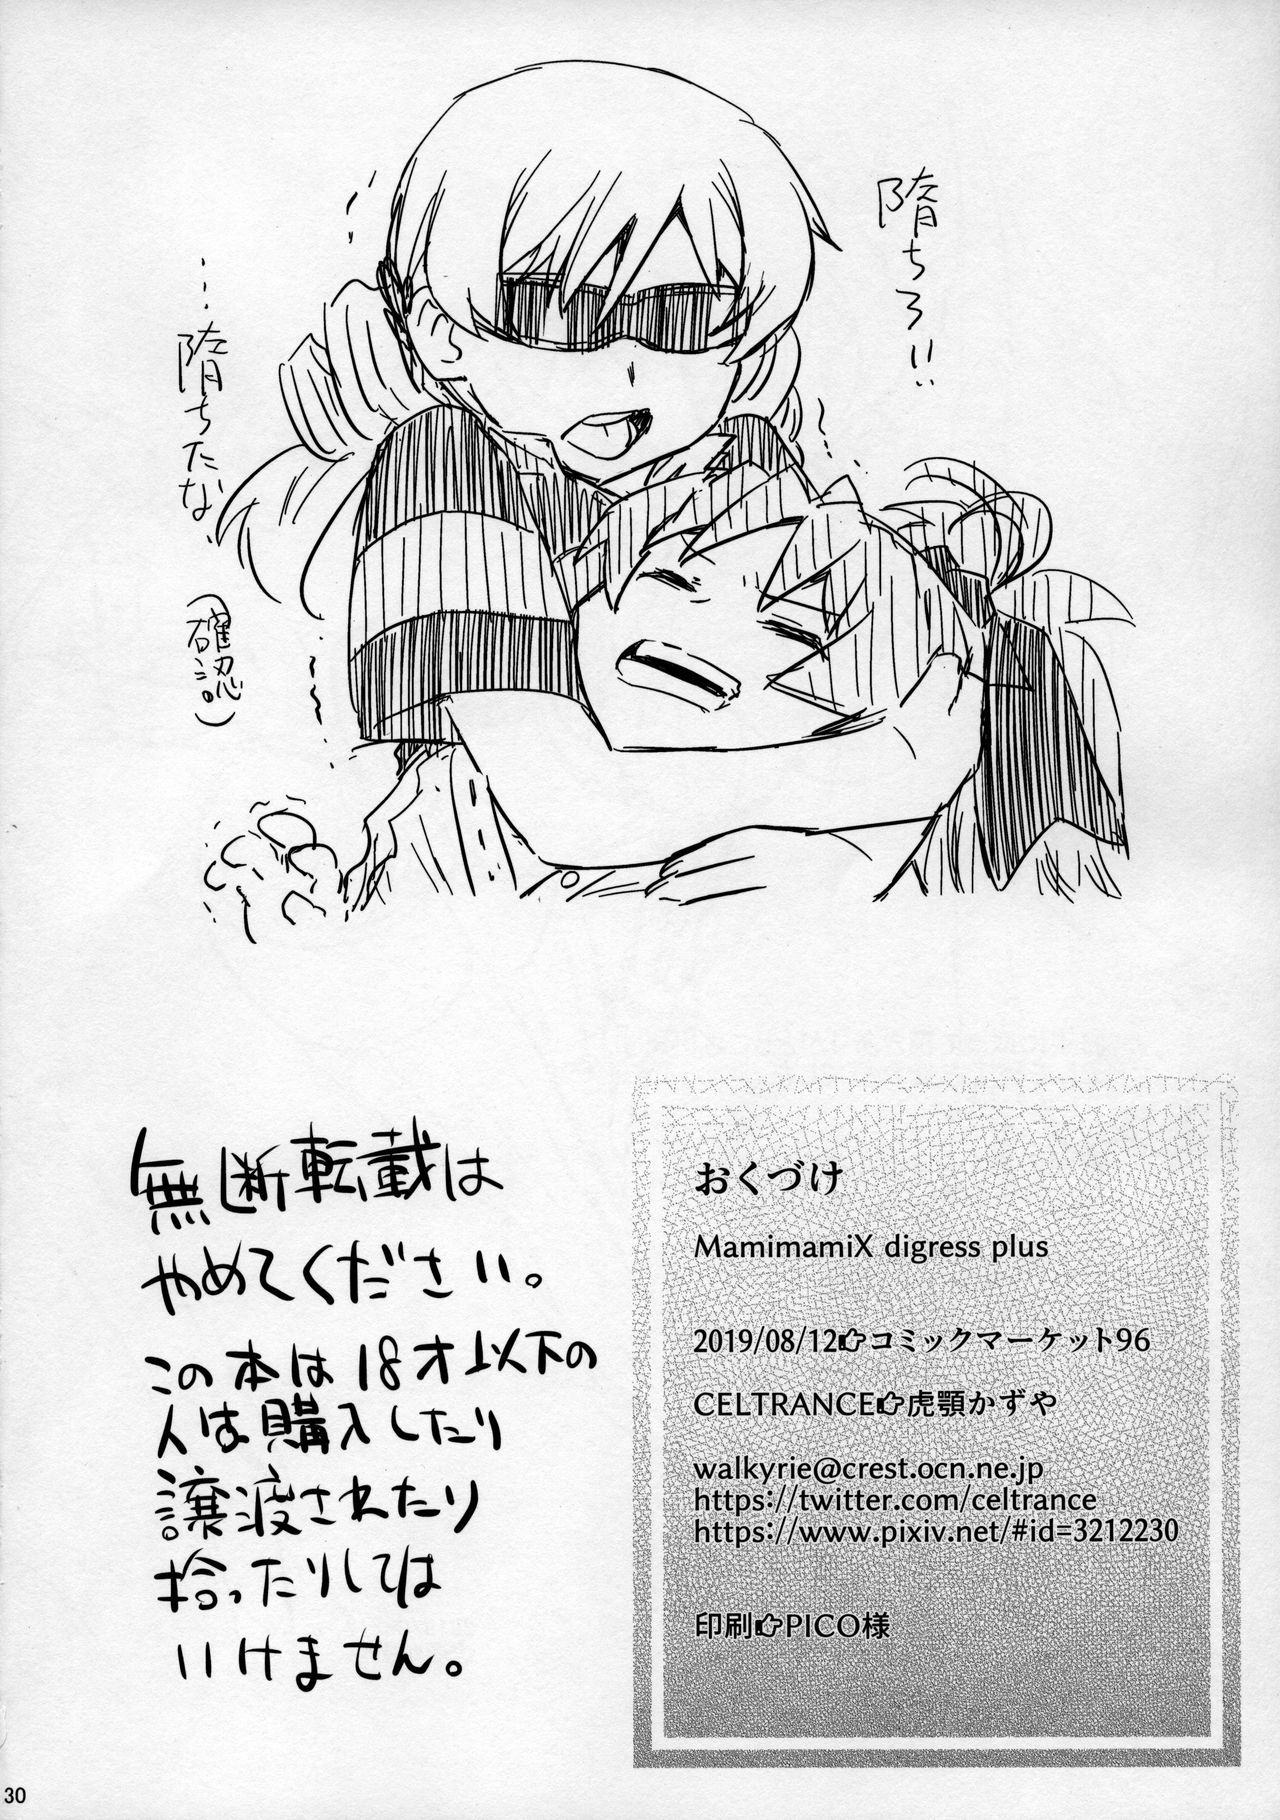 堕ちろ!!
…堕ちたな
(確認)
無断転載は
やめてください。
この本は18才以下の
人は購入したり
譲渡されたり
拾ったりしては
いけません。
おくづけ
MamimamiX digress plus
2019/08/12☞コミックマーケット96
CELTRANCE☞虎顎かずや
walkyrie@crest.ocn.ne.jp
https://twitter.com/celtrance
https://www.pixiv.net/#id=3212230
印刷☞PICO様
30